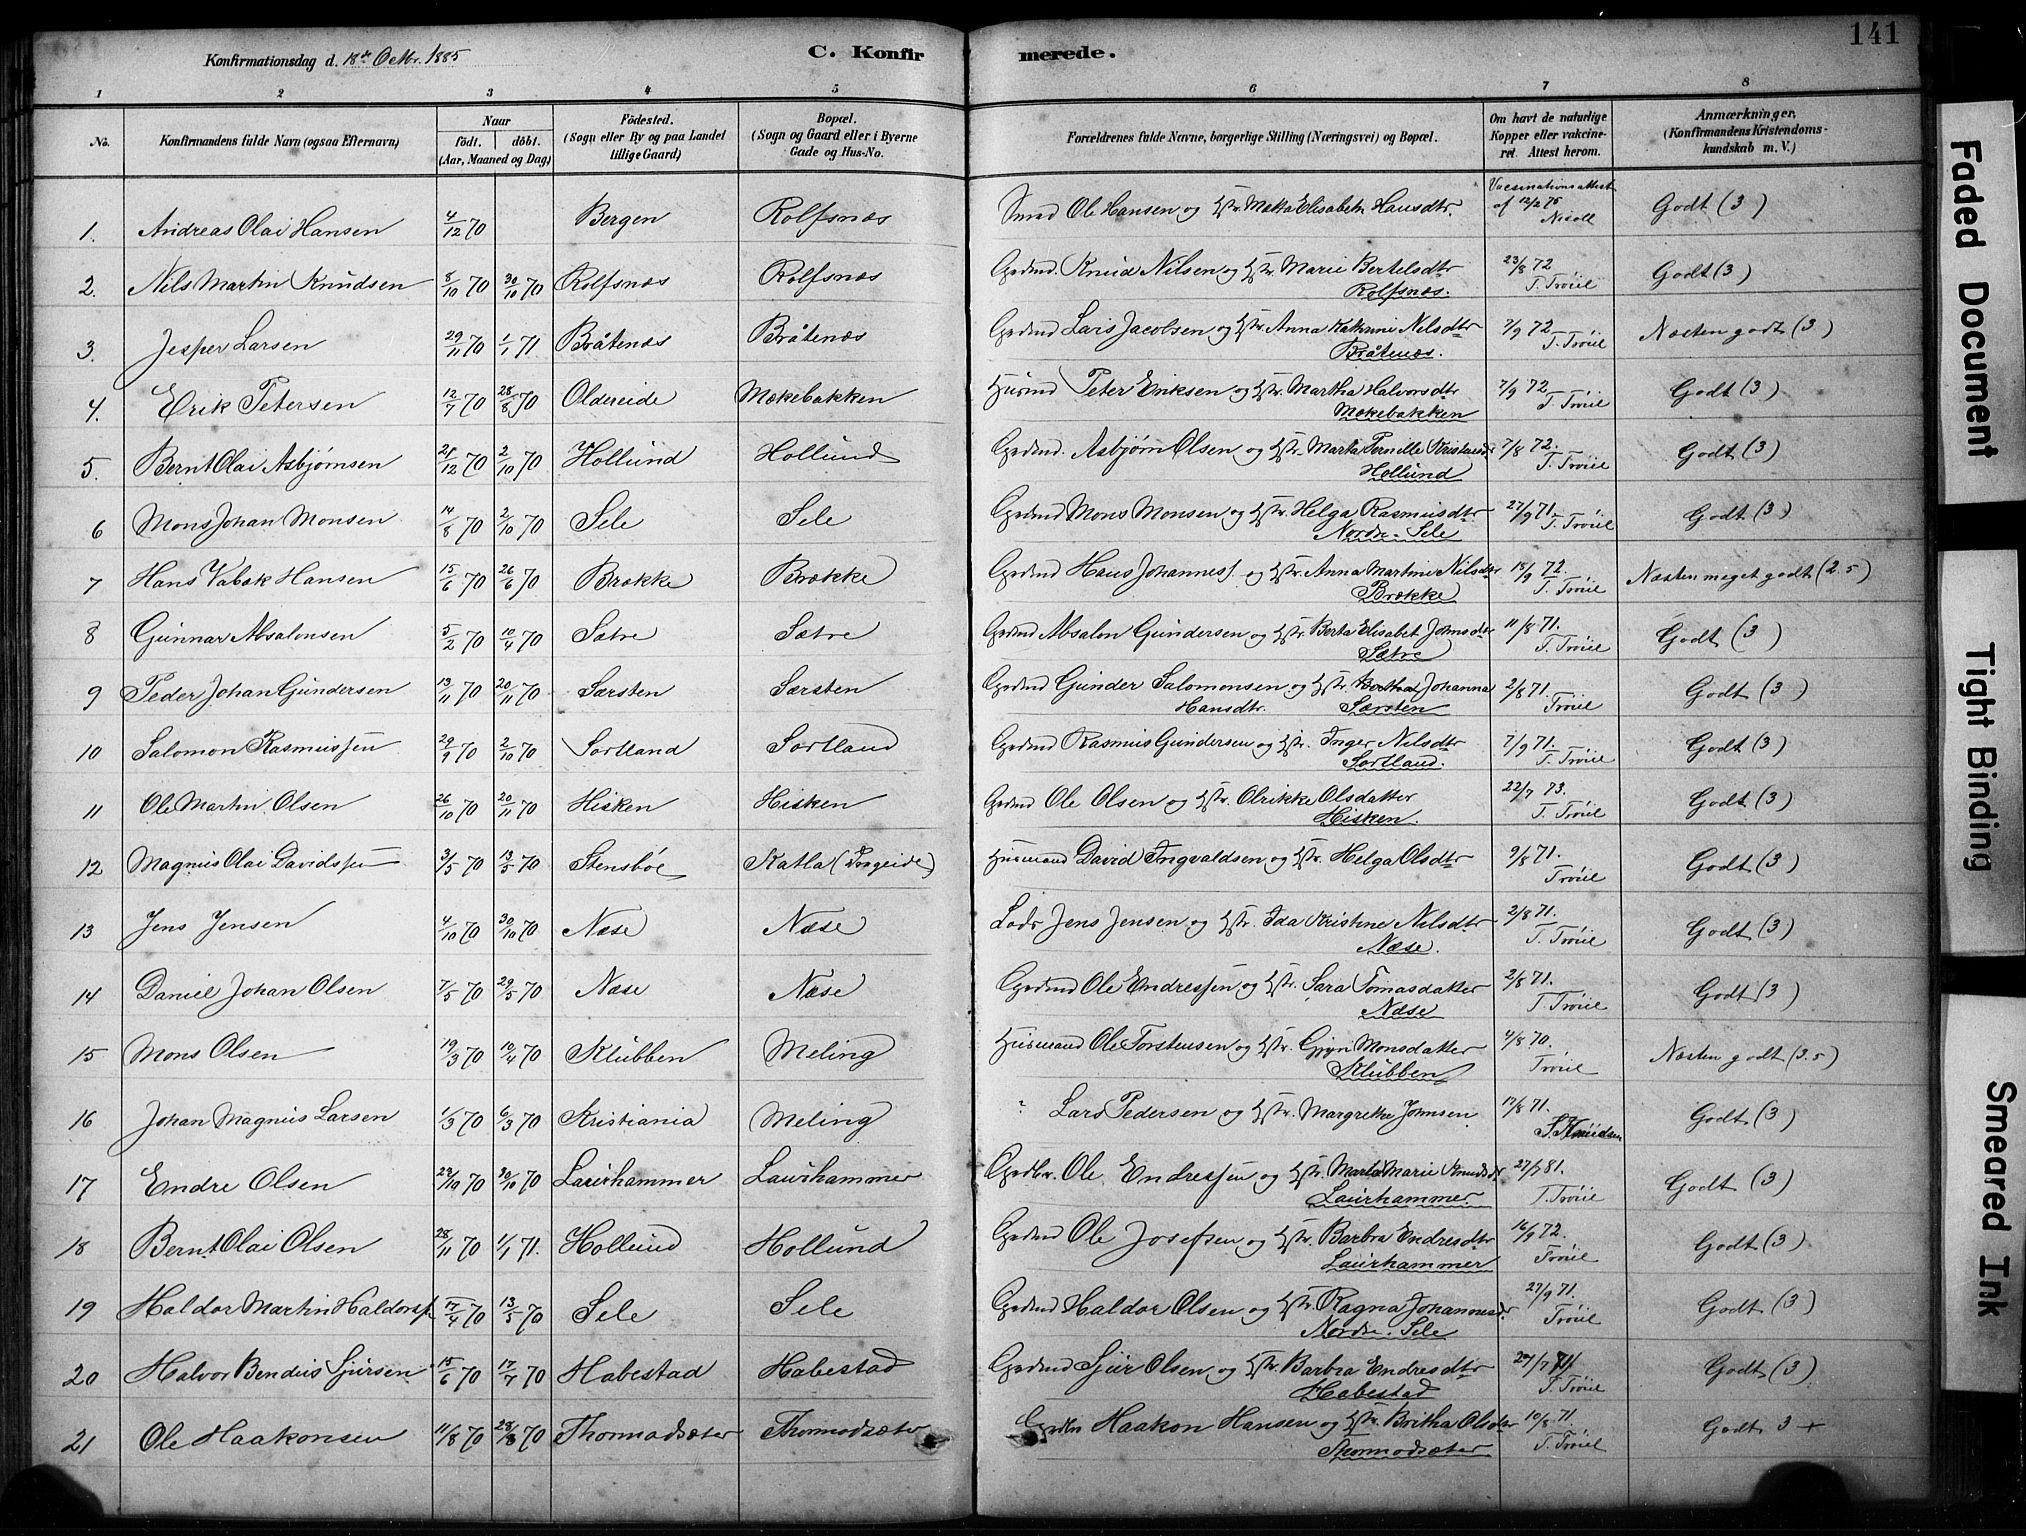 141
Konfirmationsdag d. 18de Octbr. 1885
C. Konfirmerede.
1 2 3 4 5 6 7 8
No.
Konfirmandens fulde Navn (ogsaa Efternavn)
Naar
födt. döbt.
(Aar, Maaned og Dag)
Födested.
(Sogn eller By og paa Landet
tillige Gaard)
Bopæl.
(Sogn og Gaard eller i Byerne
Gade og Hus-No.
Forældrenes fulde Navne, borgerlige Stilling (Næringsvei) og Bopæl.
Om havt de naturlige
Kopper eller vakcine-
ret. Attest herom.
Anmærkninger,
(Konfirmandens Kristendoms-
kundskab m. V.)
1. Andreas Olai Hansen 4/12 70 Bergen Rolfsnæs Ole Hansen og Hstr. Elisabeth Hansdtr. Vaccinationsattest af 12/2 75 Godt (3)
2. Nils Martin Knudsen 8/10 70 30/10 70 Rolfsnæs Rolfsnæs Grdmd. Knud Nilsen og Hstr. Marie Bertelsdtr 23/8 72 Godt (3)
Rolfsnæs. T. Troïel
3. Jesper Larsen 29/11 70 1/1 71 Bråtenæs Bråtenæs Grdmd Lars Jacobsen og Hstr. Anna Kathrine Nilsdtr 7/9 72 Næsten godt (3)
Bråtenæs. T. Troïel
4. Erik Petersen 12/7 70 28/8 70 Oldereide Mækebakken Husmd Peter Eriksen og Hstr. Martha Halvorsdtr 7/9 72 Godt (3)
Mækebakken T. Troïel
5. Bernt Olai Asbjørnsen 21/12 70 2/10 70 Hollund Hollund Grdmd. Asbjørn Olsen og Hstr. Marta Pernille 7/8 72. Godt (3)
Hollund T. Troïel
6 Mons Johan Monsen 14/8 70 2/10 70 Sele Sele Grdmd Mons Monsen og Hstr. Helga Rasmusdtr 27/9 71. Godt (3)
Nordre-Sele T. Troïel
7 Hans Vabøk Hansen 15/6 70 26/6 70 Brække Brække Grdmd Hans Johanness. og Hstr. Anna Martine Nilsdtr 18/9 72. Næsten meget godt (2.5)
Brække T. Troïel
8 Gunnar Absalonsen 5/2 70 10/4 70 Sætre Sætre Grdmd Absalon Gundersen og Hstr. Berta Elisabet Johnsdtr 11/8 71. Godt (3)
Sætre T. Troïel
9 Peder Johan Gundersen 13/11 70 20/11 70 Særsten Særsten Grdmd Gunder Salomonsen og Hstr. Bertha Johanna 2/8 71. Godt (3)
Hansdtr. Særsten Troïel
10 Salomon Rasmussen 29/9 70 2/10 70 Sortland Sortland Grdmd Rasmus Gundersen og Hstr. Inger Nilsdtr 7/9 71. Godt (3)
Sortland. T. Troïel
11 Ole Martin Olsen 26/10 70 20/11 70 Hisken Hisken Grdmd Ole Olsen og Hstr. Olrikke Olsdatter 22/7 73. Godt (3)
Hisken. T. Troïel
12 Magnus Olai Davidssen 3/5 70 13/5 70 Stensbøe Katla Husmand David Ingvaldsen og Hstr. Helga Olsdtr 9/8 71. Godt (3)
Troïel
13 Jens Jensen 4/10 70 30/10 70 Næse Næse Lods Jens Jensen og Hstr. Ida Kristine Nilsdtr 2/8 71. Godt (3)
Næse. T. Troïel
14 Daniel Johan Olsen 7/5 70 29/5 70 Næse Næse Grdmd Ole Endressen og Hstr. Sara Tomasdatter 2/8 71. Godt (3)
Næse T. Troïel
15 Mons Olsen 19/3 70 10/4 70 Klubben Meling Husmand Ole Torstensen og Hstr. Gjøn Monsdatter 4/8 70. Næsten godt (3.5)
Klubben Troïel
16 Johan Magnus Larsen 1/3 70 6/3 70 Kristiania Meling Lars Pedersen og Hstr. Margrethe Johnsen. 17/8 71. Godt (3)
S. Knudsen
17 Endre Olsen 23/10 70 30/10 70 Laurhammer Laurhammer Grdbr. Ole Endressen og Hstr. Marta Marie Knudsdr 27/7 81. Godt (3)
Laurhammer T. Troïel
18 Bernt Olai Olsen 28/11 70 1/1 71. Hollund Hollund Grdmd Ole Josefsen og Hstr. Barbra Endresdtr 16/9 72. Godt (3)
Laurhammer Troïel
19 Haldor Martin Haldors. 17/4 70 13/5 70 Sele Sele Grdmd Haldor Olsen og Hstr. Ragna Johannesdr. 27/9 71. Godt (3)
Nordre-Sele Troïel
20 Halvor Bendius Sjursen 15/6 70 17/7 70 Habestad Habestad Grdmd Sjur Olsen og Hstr. Barbra Endresdtr 29/7 71. Godt (3)
Habestad T. Troïel
21 Ole Haakonsen 11/8 70 28/8 70 Thormodsæter Thormodsæter Grdbr Haakon Hansen og Hstr. Britha Olsdtr 10/8 71. Godt 3 +
Thormodsæter T. Troïel
Faded Document
Tight Binding
Smeared Ink